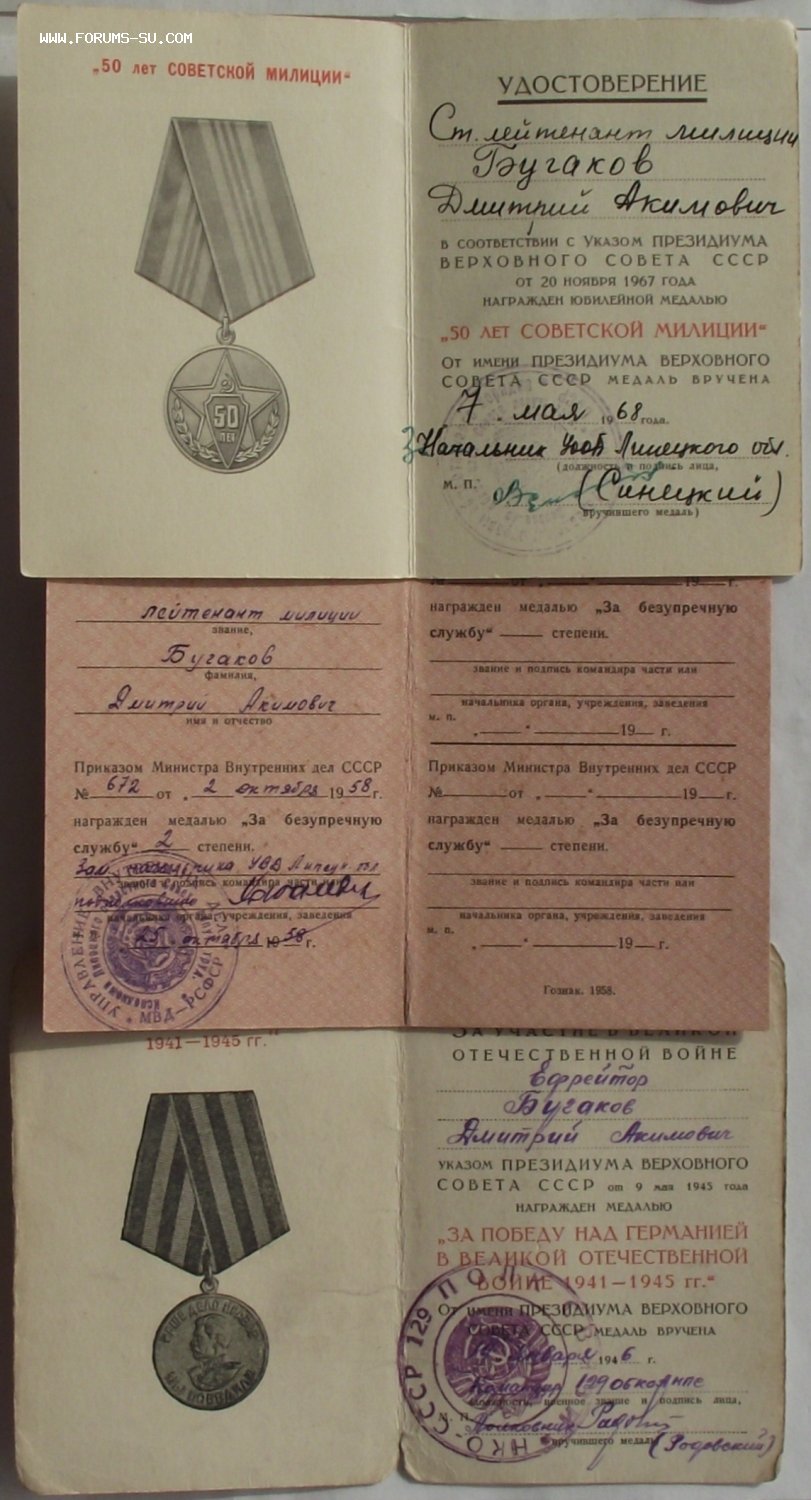 WWW.FORUMS-SU.COM
„50 лет СОВЕТСКОЙ МИЛИЦИИ“
50
ЛЕТ
УДОСТОВЕРЕНИЕ
Ст. лейтенант милиции
Бугаков
Дмитрий Акимович
В СООТВЕТСТВИИ С УКАЗОМ ПРЕЗИДИУМА
ВЕРХОВНОГО СОВЕТА СССР
ОТ 20 НОЯБРЯ 1967 ГОДА
НАГРАЖДЕН ЮБИЛЕЙНОЙ МЕДАЛЬЮ
„50 ЛЕТ СОВЕТСКОЙ МИЛИЦИИ“
ОТ ИМЕНИ ПРЕЗИДИУМА ВЕРХОВНОГО
СОВЕТА СССР МЕДАЛЬ ВРУЧЕНА
7 мая 1968 года.
Начальник Липецкого обл.
(должность и подпись лица,
М. П. (Синецкий)
вручившего медаль)
лейтенант милиции
звание,
Бугаков
фамилия,
Дмитрий Акимович
имя и отчество
Приказом Министра Внутренних дел СССР
№ 672 от „2 октября 1958 г.
награжден медалью „За безупречную
службу“ 2 степени.
Зам. начальника УВД Липецк обл
звание и подпись командира части или
подполковник
начальника органа, учреждения, заведения
25 октября 1958 г.
УПРАВЛЕНИЕ ВНУТРЕННИХ
МВД-РСФСР
№ от „ “ 19 г.
награжден медалью „За безупречную
службу“ степени.
звание и подпись командира части или
начальника органа, учреждения, заведения
м. п.
„ “ 19 г.
Приказом Министра Внутренних дел СССР
№ от „ “ 19 г.
награжден медалью „За безупречную
службу“ степени.
звание и подпись командира части или
начальника органа, учреждения, заведения
м. п.
„ “ 19 г.
Гознак. 1958.
1941—1945 гг.“
НАШЕ ДЕЛО ПРАВОЕ
МЫ ПОБЕДИЛИ
ЗА УЧАСТИЕ В ВЕЛИКОЙ
ОТЕЧЕСТВЕННОЙ ВОЙНЕ
Ефрейтор
Бугаков
Дмитрий Акимович
УКАЗОМ ПРЕЗИДИУМА ВЕРХОВНОГО
СОВЕТА СССР от 9 мая 1945 года
НАГРАЖДЕН МЕДАЛЬЮ
„ЗА ПОБЕДУ НАД ГЕРМАНИЕЙ
В ВЕЛИКОЙ ОТЕЧЕСТВЕННОЙ
ВОЙНЕ 1941—1945 гг.“
ОТ ИМЕНИ ПРЕЗИДИУМА ВЕРХОВНОГО
СОВЕТА СССР МЕДАЛЬ ВРУЧЕНА
января 1946 г.
Командир 129
должность, военное звание и подпись лица,
М. П. Полковник
вручившего медаль) (Родовский)
НКО-СССР 129